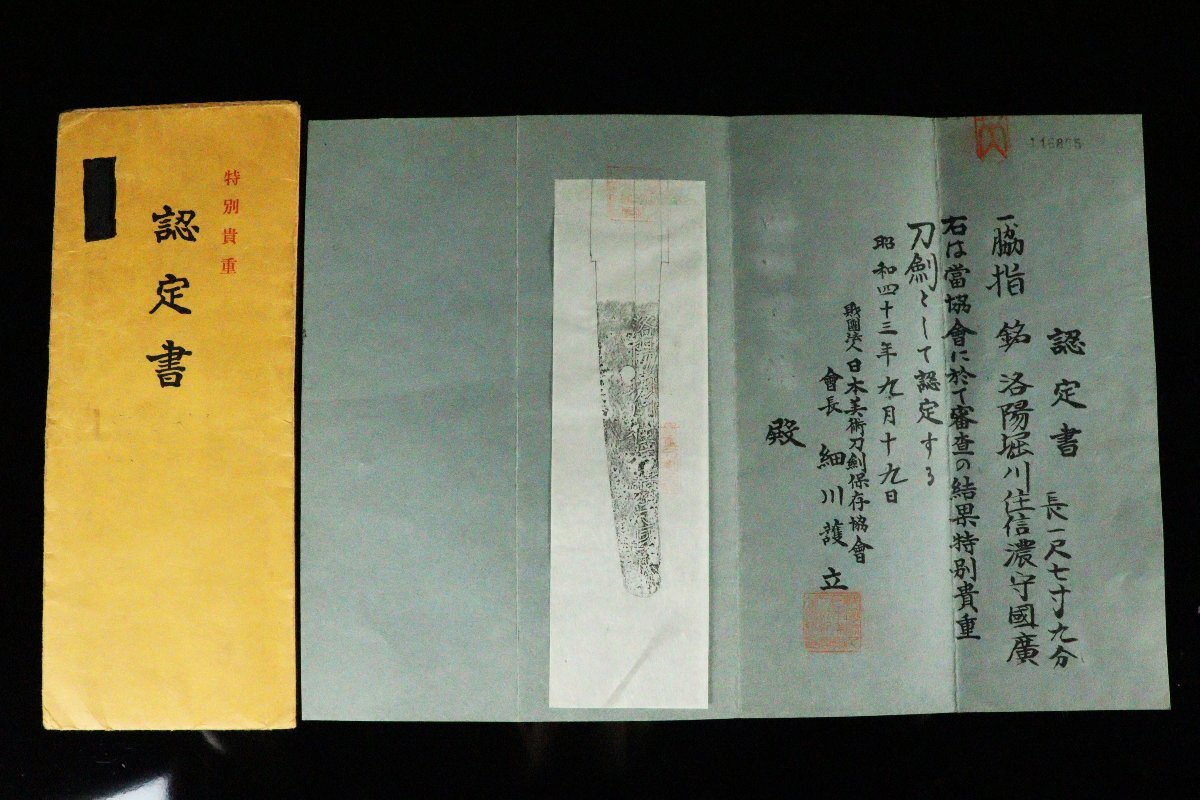 特別貴重
認定書
認定書
長一尺七寸九分
一脇指 銘 洛陽堀川住信濃守國廣
右は當協會に於て審査の結果特別貴重
刀劍として認定する
昭和四十三年九月十九日
財團法人日本美術刀劍保存協會
會長 細川護立
殿